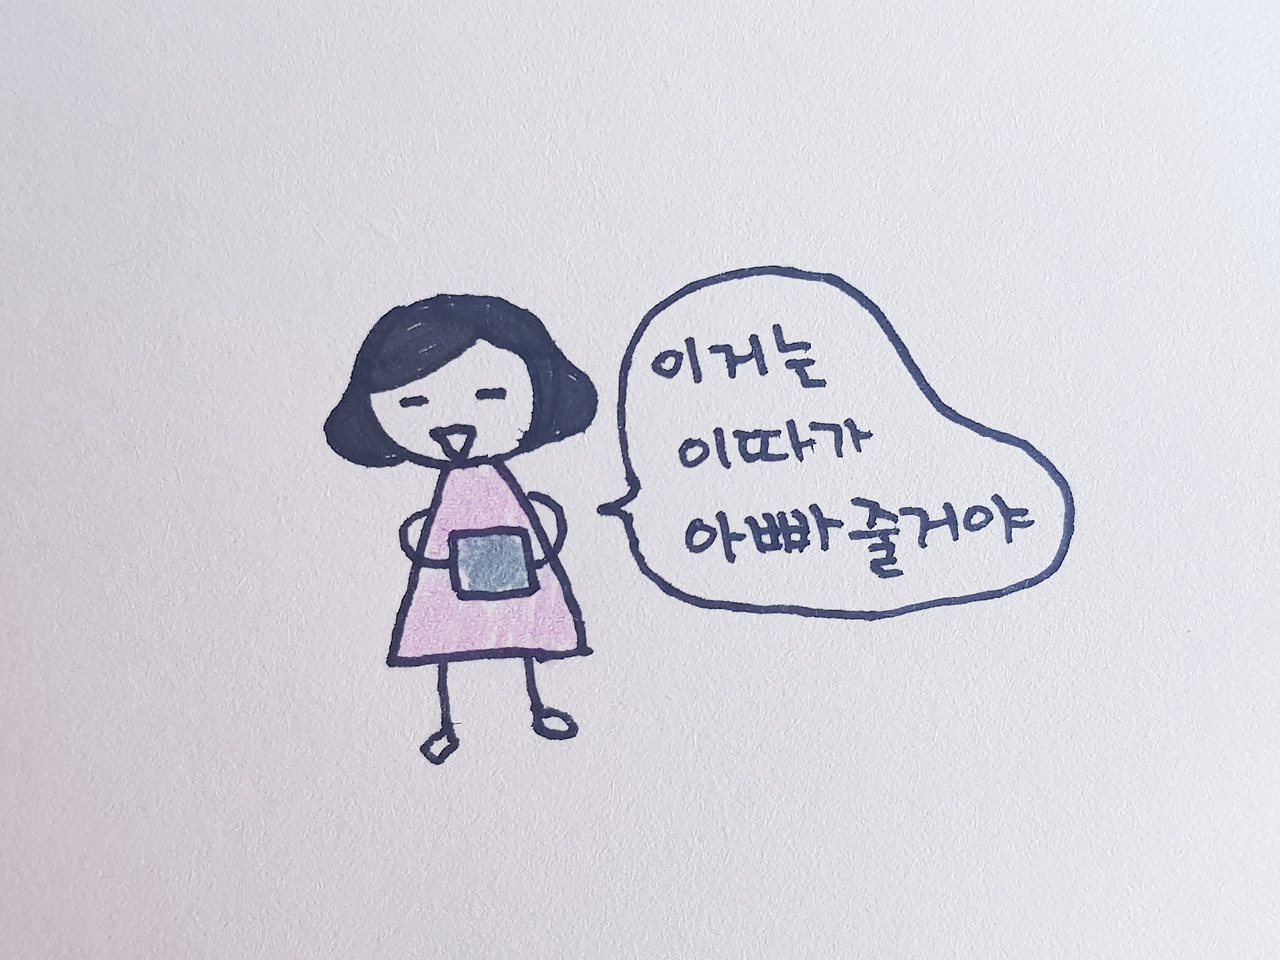 이거는
이따가
아빠줄거야